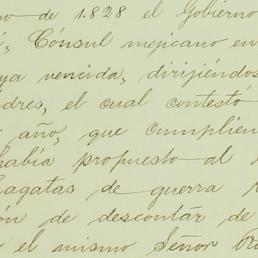 de 1.828 el Gobierno
Cónsul mejicano en
ya vencida, dirigiéndos
dres, el cual contestó
año, que cumplien
había propuesto al
agatas de guerra
ón de descontar de
el mismo Señor